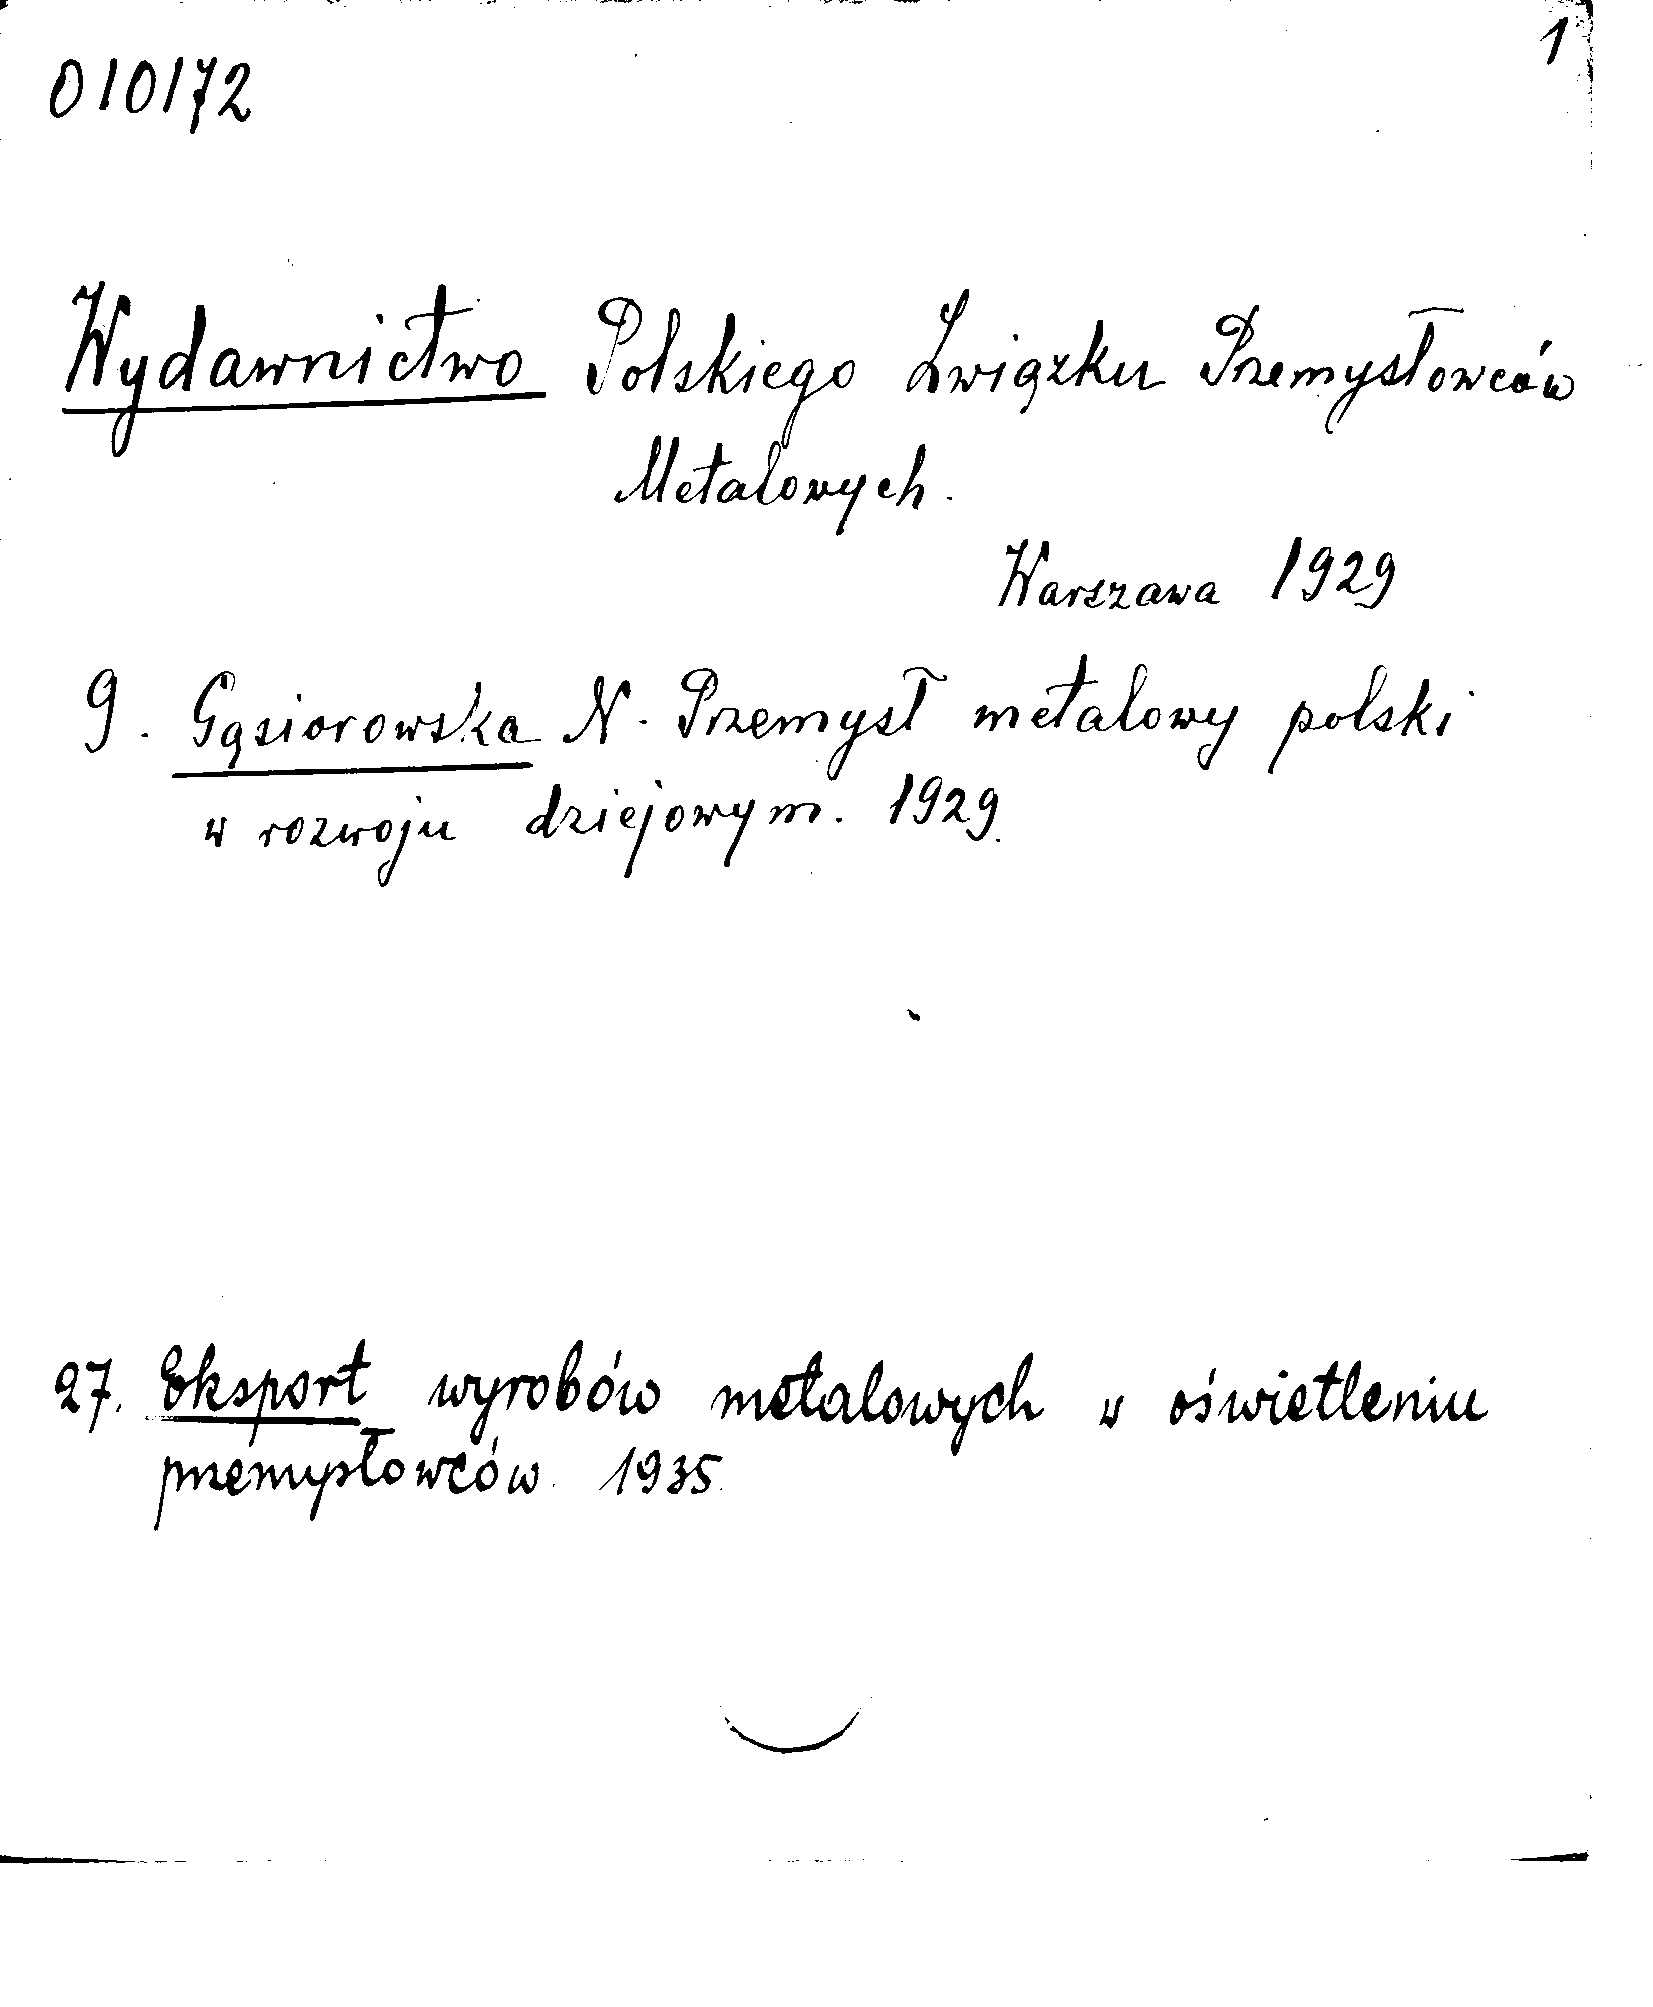 1
010172
Wydawnictwo Polskiego Związku Przemysłowców
Metalowych.
Warszawa 1929
9. Gąsiorowska N. Przemysł metalowy polski
w rozwoju dziejowym. 1929.
27. Eksport wyrobów metalowych w oświetleniu
przemysłowców. 1935.